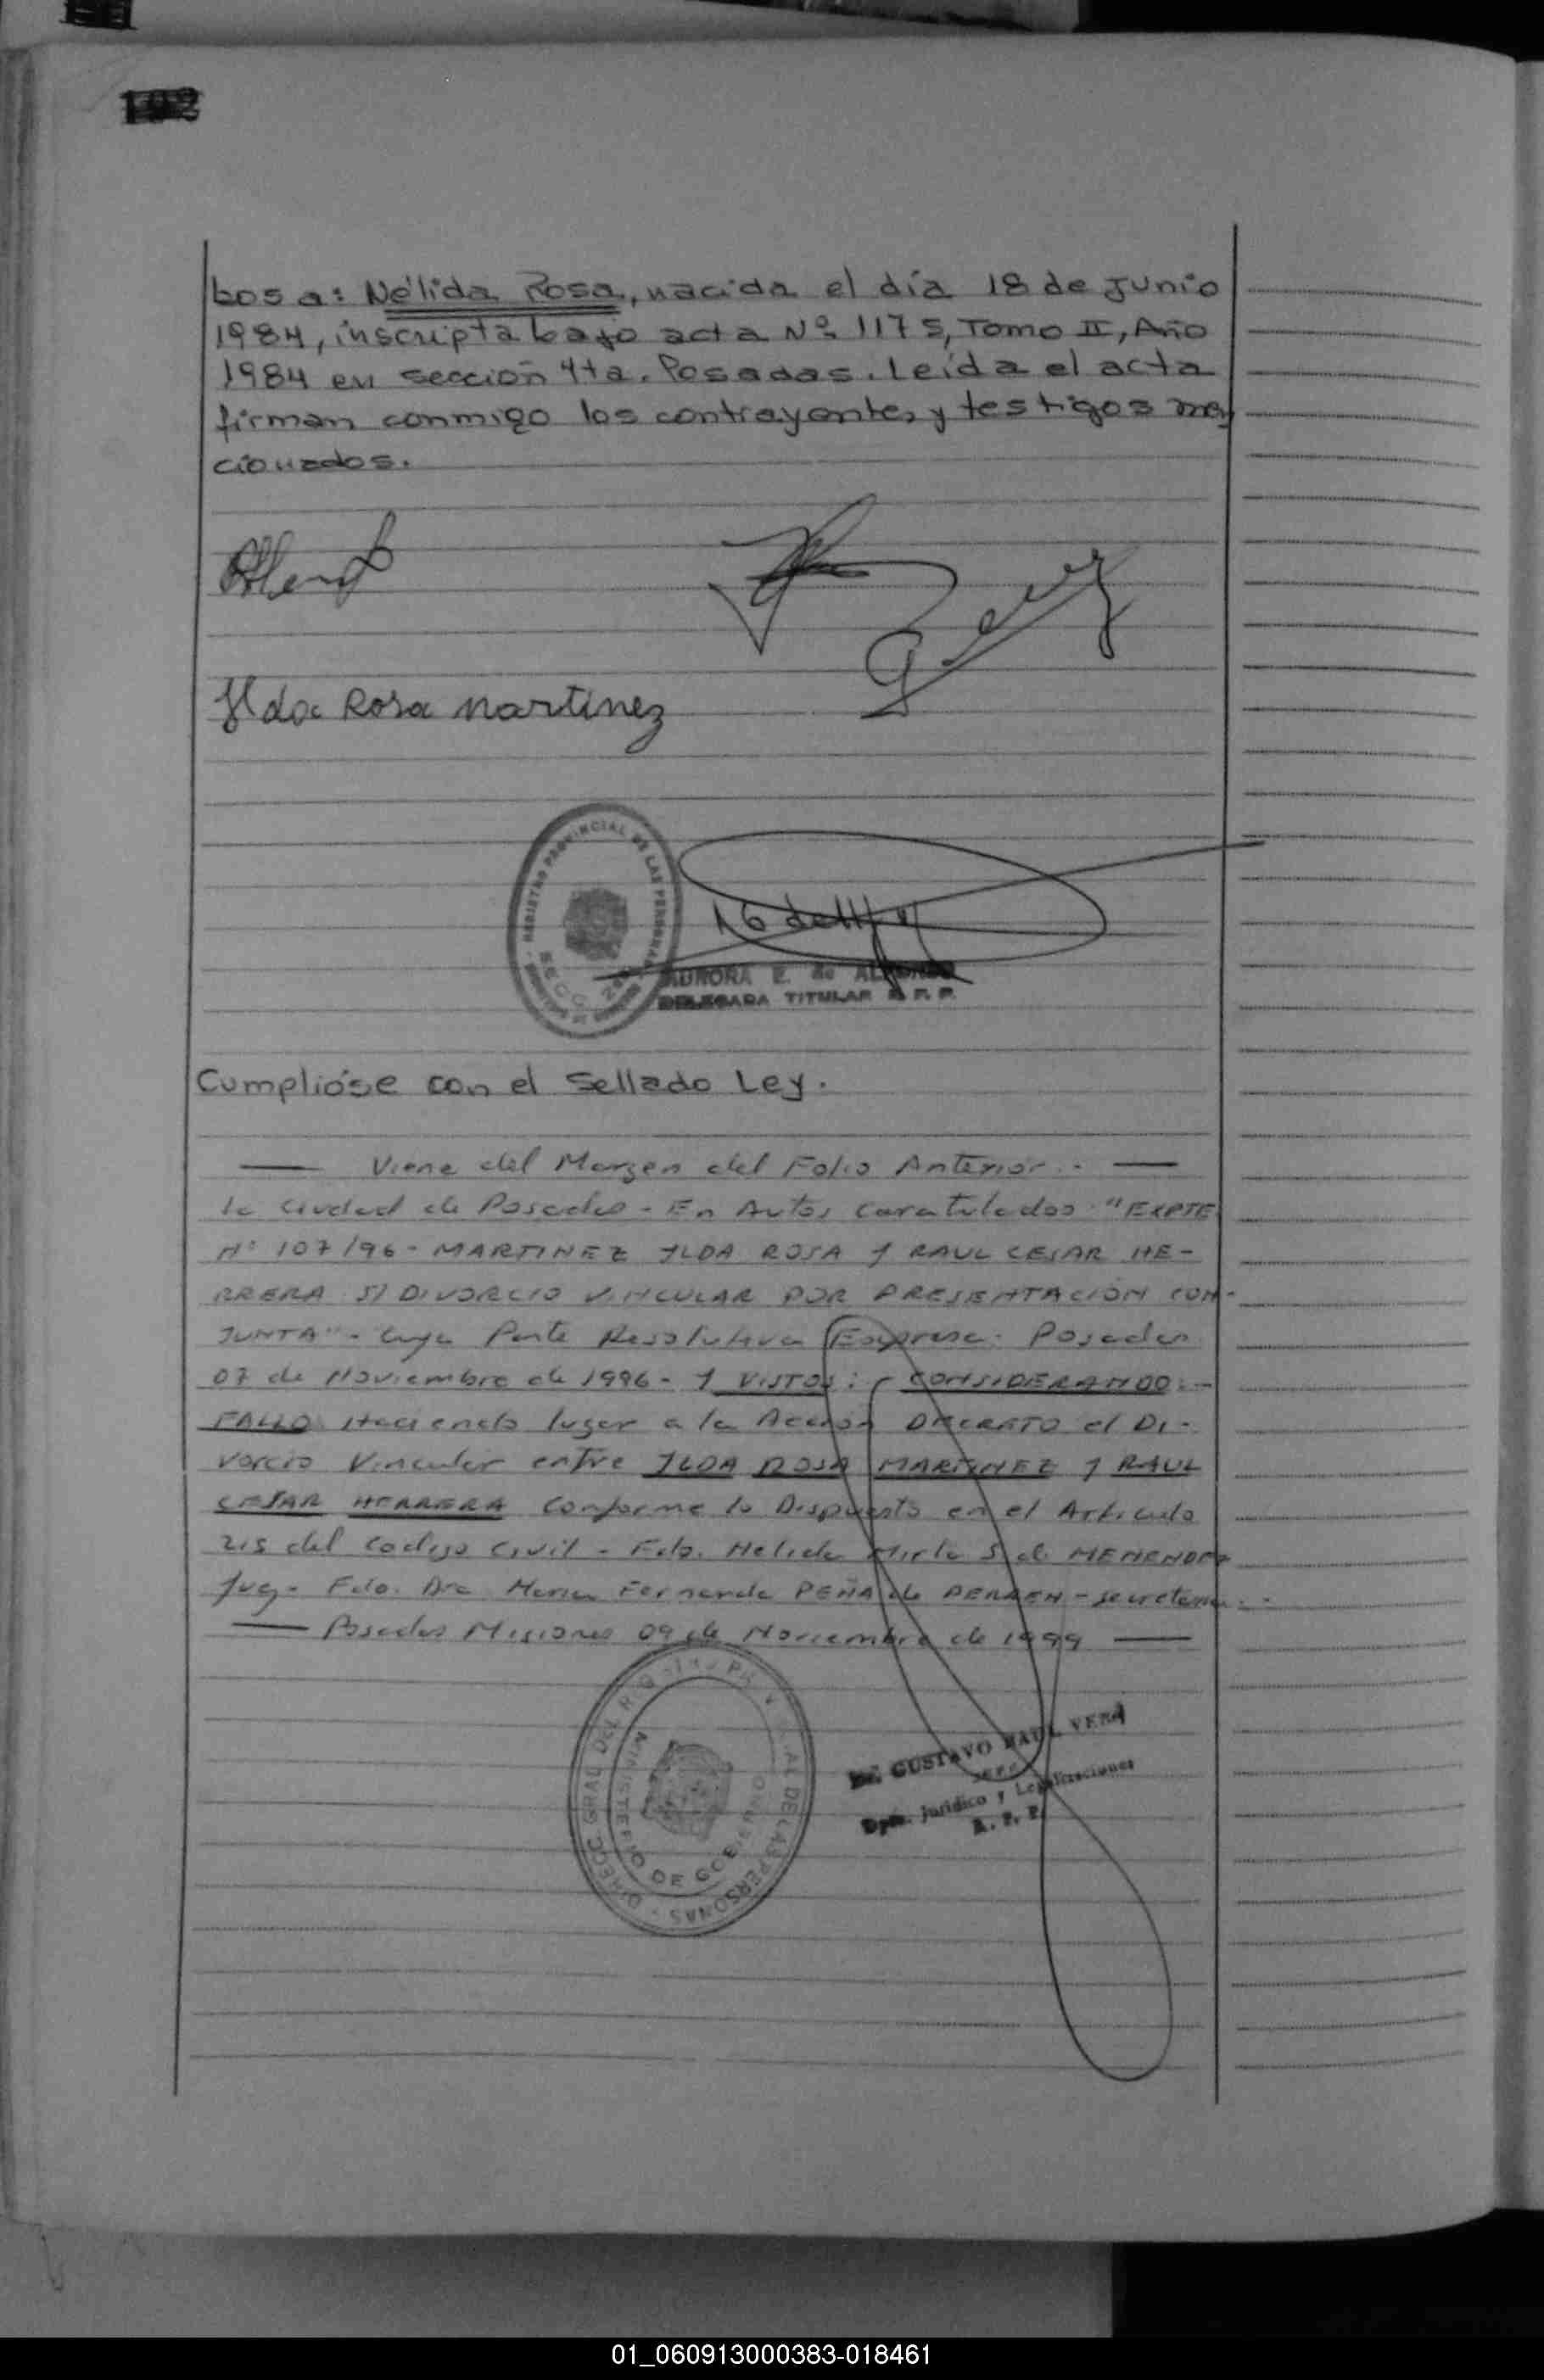 192
bos a: Nélida Rosa, nacida el día 18 de Junio
1984, inscripta bajo acta Nº 1175, Tomo II, Año
1984 en sección 4ta. Posadas. Leída el acta
firman conmigo los contrayentes y testigos men
cionados.
Ilda Rosa Martinez
REGISTRO PROVINCIAL DE LAS PERSONAS
SECC. 2da
AURORA E. de ALFONSO
DELEGADA TITULAR R. P. P.
Cumplióse con el Sellado Ley.
— Viene del Margen del Folio Anterior.- —
la Ciudad de Posadas - En Autos Caratulados "EXPTE
Nº 107/96 - MARTINEZ ILDA ROSA Y RAUL CESAR HE-
RRERA S/ DIVORCIO VINCULAR POR PRESENTACIÓN CON-
JUNTA" - Cuya Parte Resolutiva Expresa: Posadas
07 de Noviembre de 1996 - Y VISTOS: CONSIDERANDO:-
FALLO Haciendo lugar a la Acción DECRETO el Di-
vorcio Vincular entre ILDA ROSA MARTINEZ Y RAUL
CESAR HERRERA Conforme lo Dispuesto en el Articulo
215 del Codigo Civil - Fdo. Nelida Mirta S. de MENENDEZ
Juez - Fdo. Dra Maria Fernanda PEÑA de - Secretaria.-
— Posadas Misiones 09 de Noviembre de 1999 —
DIRECC GRAL DEL REGISTRO PROVINCIAL DE LAS PERSONAS
MINISTERIO DE GOBIERNO
Dr. GUSTAVO RAUL VERA
JEFE
Dpto. Jurídico y Legalizaciones
R. P. P.
01_060913000383-018461